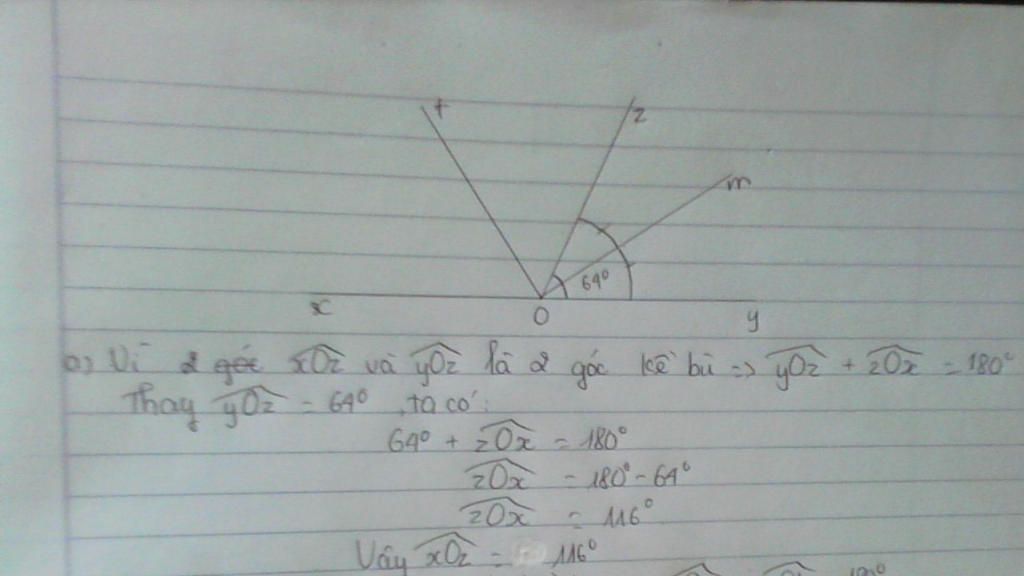 t
z
m
64°
x
O
y
a) Vì 2 góc xOz và yOz là 2 góc kề bù => yOz + zOx = 180°
Thay yOz = 64°, ta có:
64° + zOx = 180°
zOx = 180° - 64°
zOx = 116°
Vậy xOz = 116°